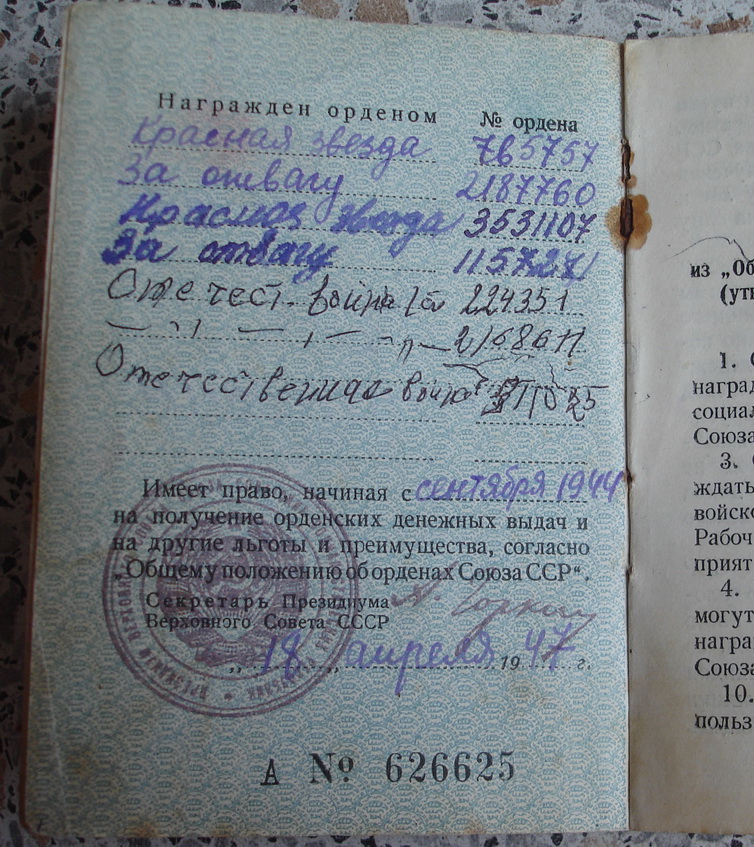 Награжден орденом № ордена
Красная звезда 765757
За отвагу 2187760
Красная звезда 3531107
За отвагу
Отечест. война 224351
2168611
Отечественная война
Имеет право, начиная с сентября 1944
на получение орденских денежных выдач и
на другие льготы и преимущества, согласно
„Общему положению об орденах Союза ССР“.
Секретарь Президиума
Верховного Совета СССР
„18„ апреля 1947 г.
А № 626625
из „Об
(ут
1. С
награж
социал
Союза
3. С
ждать
войско
Рабоч
прият
4.
могут
награ
Союза
10.
польз